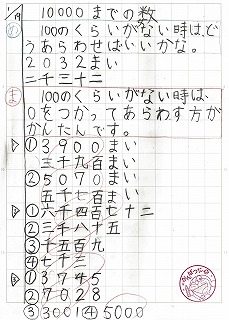 1/9 10000までの数
め 100のくらいがない時は、ど
うあらわせばいいかな。
2032まい
二千三十二
ま 100のくらいがない時は、
0をつかってあらわす方が
かんたんです。
①3900まい
三千九百まい
②5070まい
五千七百まい
①六千四百七十二
②三千八十五
③千五百九
④七千三
①3745
②7028
③3001④5000